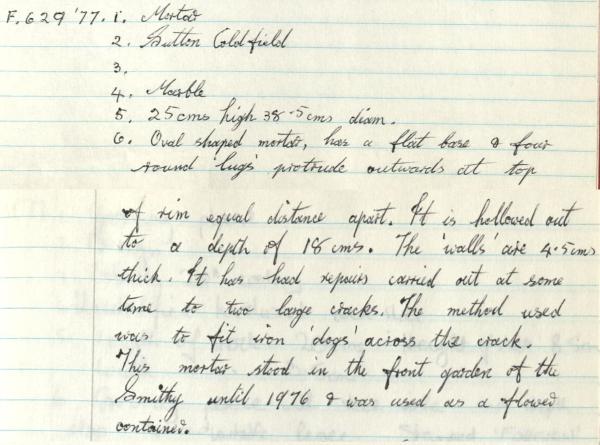 F.629'77. 1. Mortar
2. Sutton Coldfield
3.
4. Marble
5. 25cms high 38.5cms diam.
6. Oval shaped mortar, has a flat base & four
round 'lugs' protrude outwards at top
of rim equal distance apart. It is hollowed out
to a depth of 18cms. The 'walls' are 4.5cms
thick. It has had repairs carried out at some
time to two large cracks. The method used
was to fit iron 'dogs' across the crack.
This mortar stood in the front garden of the
Smithy until 1976 & was used as a flowed
contained.